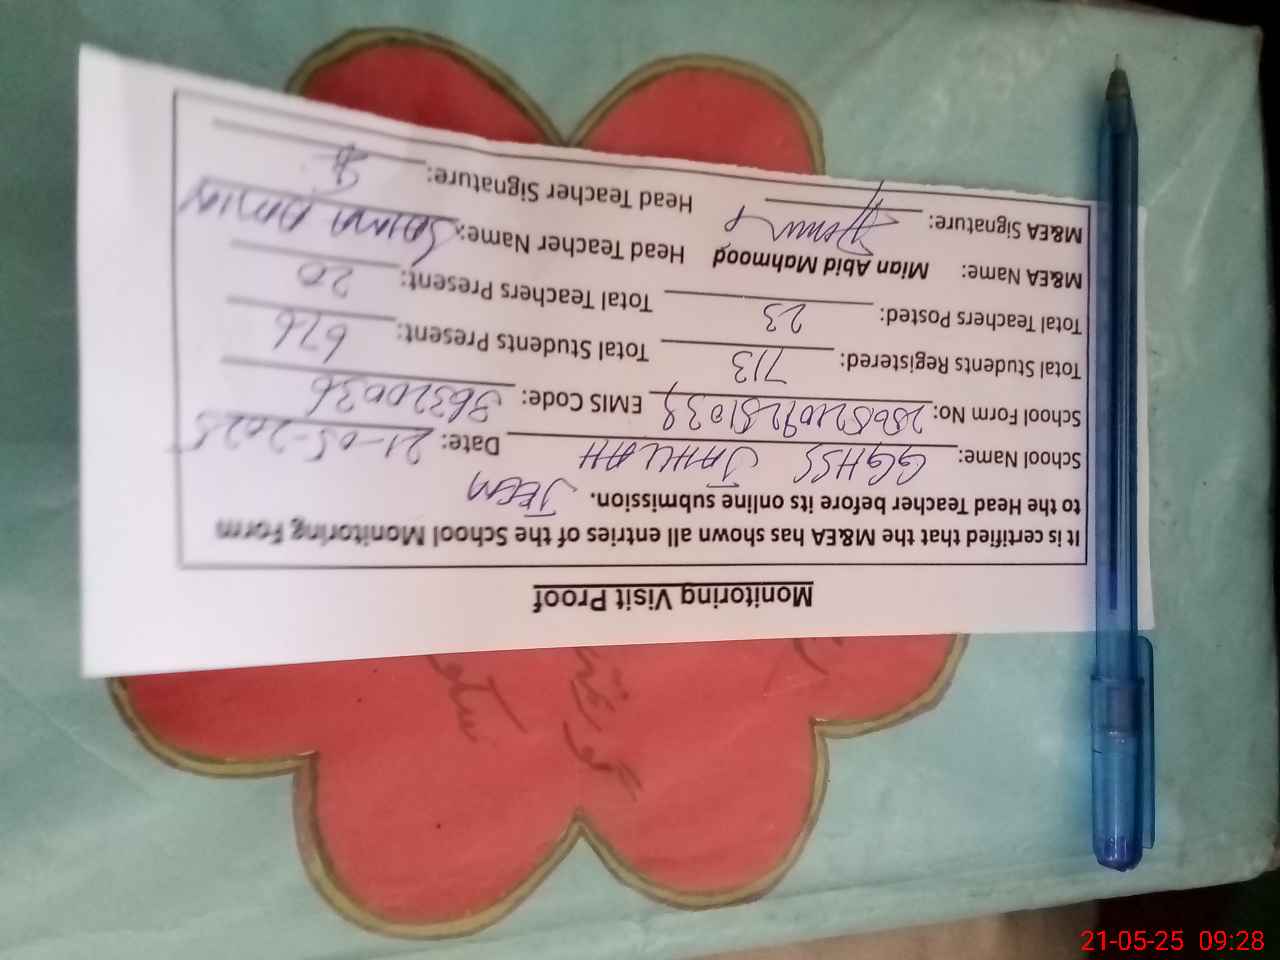 Monitoring Visit Proof
It is certified that the M&EA has shown all entries of the School Monitoring Form
to the Head Teacher before its online submission. JEEM
School Name: GGHSS JAHLLAH Date: 21-05-2025
School Form No: EMIS Code: 36320036
Total Students Registered: 713 Total Students Present: 626
Total Teachers Posted: 23 Total Teachers Present: 20
M&EA Name: Mian Abid Mahmood Head Teacher Name: SAIMA AMIN
M&EA Signature: Head Teacher Signature:
21-05-25 09:28